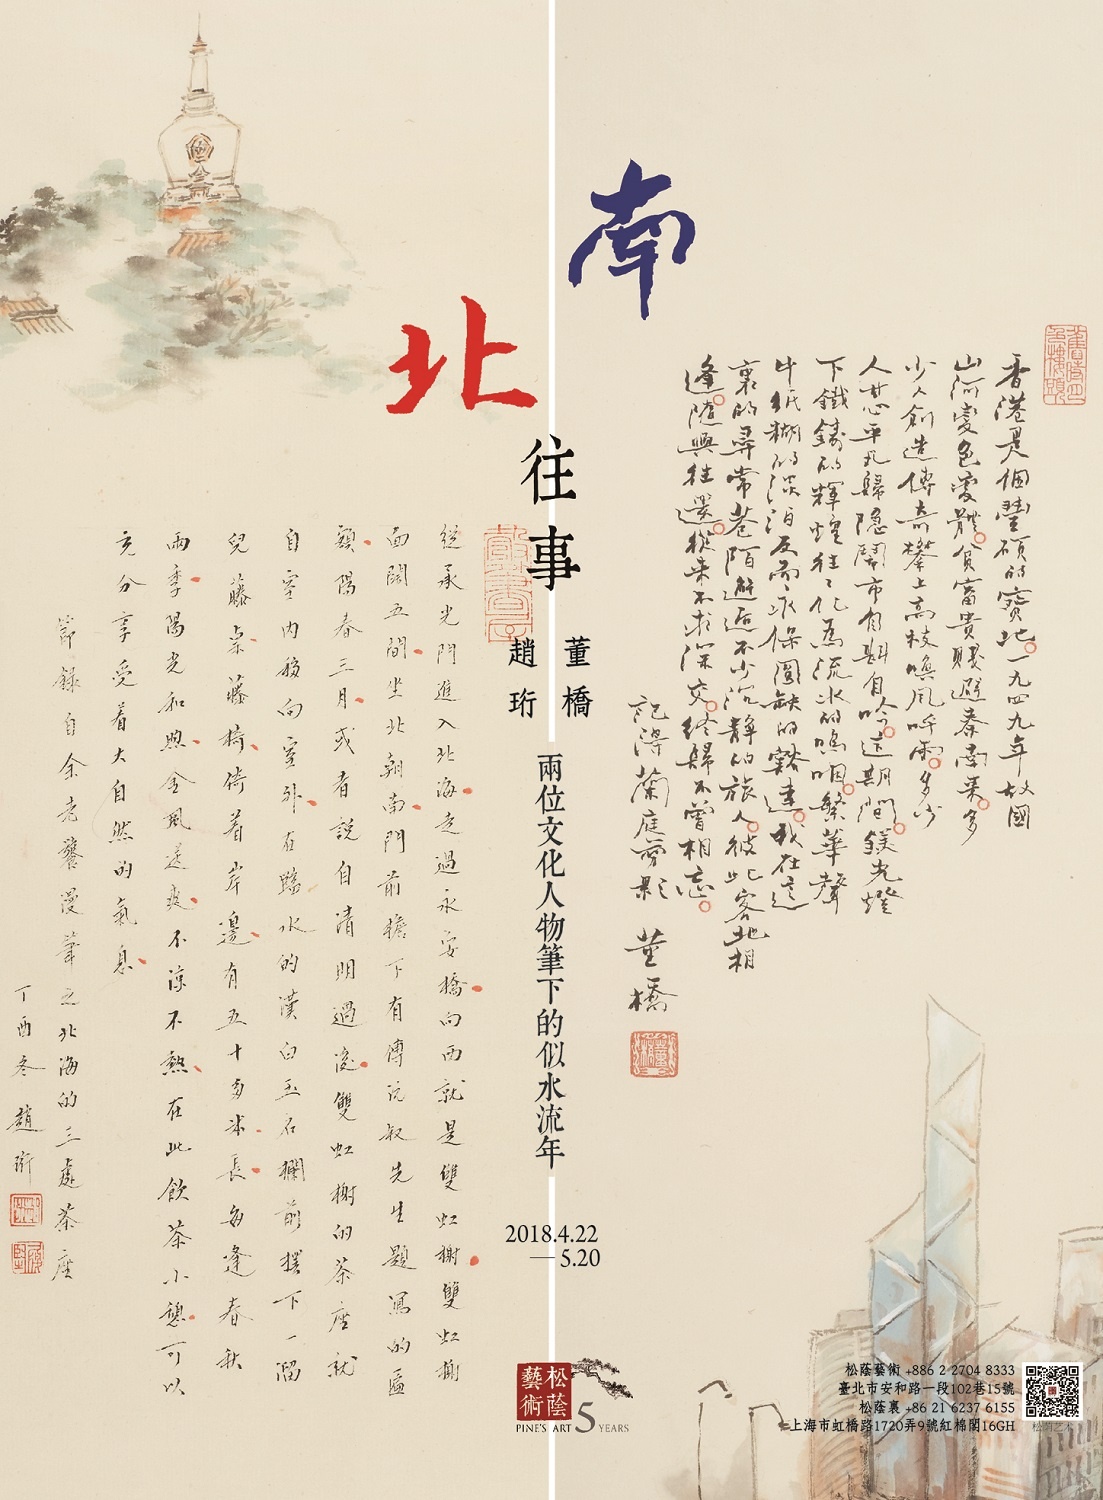 南
北
往事
董橋
趙珩
兩位文化人物筆下的似水流年
2018.4.22
—5.20
香港是個豐碩的寶地。一九四九年故國
山河變色變體。貧富貴賤避秦南來。多
少人創造傳奇攀上高枝喚風呼雨。多少
人甘心平凡歸隱鬧市自斟自吟。這期間。鎂光燈
下鐵鑄的輝煌往往化為流水的嗚咽。繁華聲
中紙糊的淡泊反而永保圓缺的豁達。我在這
裏的尋常巷陌邂逅不少沉靜的旅人。彼此客地相
逢。隨興往還。從來不求深交。終歸不曾相忘。
記得蘭庭剪影 董橋
從承光門進入北海、走過永安橋、向西就是雙虹榭、雙虹榭
面闊五間、坐北朝南、門前檐下有傅沅叔先生題寫的匾
額、陽春三月、或者說自清明過後、雙虹榭的茶座就
自室內移向室外、在臨水的漢白玉石欄前擺下一溜
兒藤桌、藤椅、倚着岸邊、有五十多米長、每逢春秋
兩季、陽光和煦、金風送爽、不涼不熱、在此飲茶小憩、可以
充分享受着大自然的氣息、
節錄自余老饕漫筆之北海的三處茶座
丁酉冬 趙珩
松蔭藝術
PINE'S ART 5 YEARS
松蔭藝術 +886 2 2704 8333
臺北市安和路一段102巷15號
松蔭裏 +86 21 6237 6155
上海市虹橋路1720弄9號紅棉閣16GH
松荫艺术